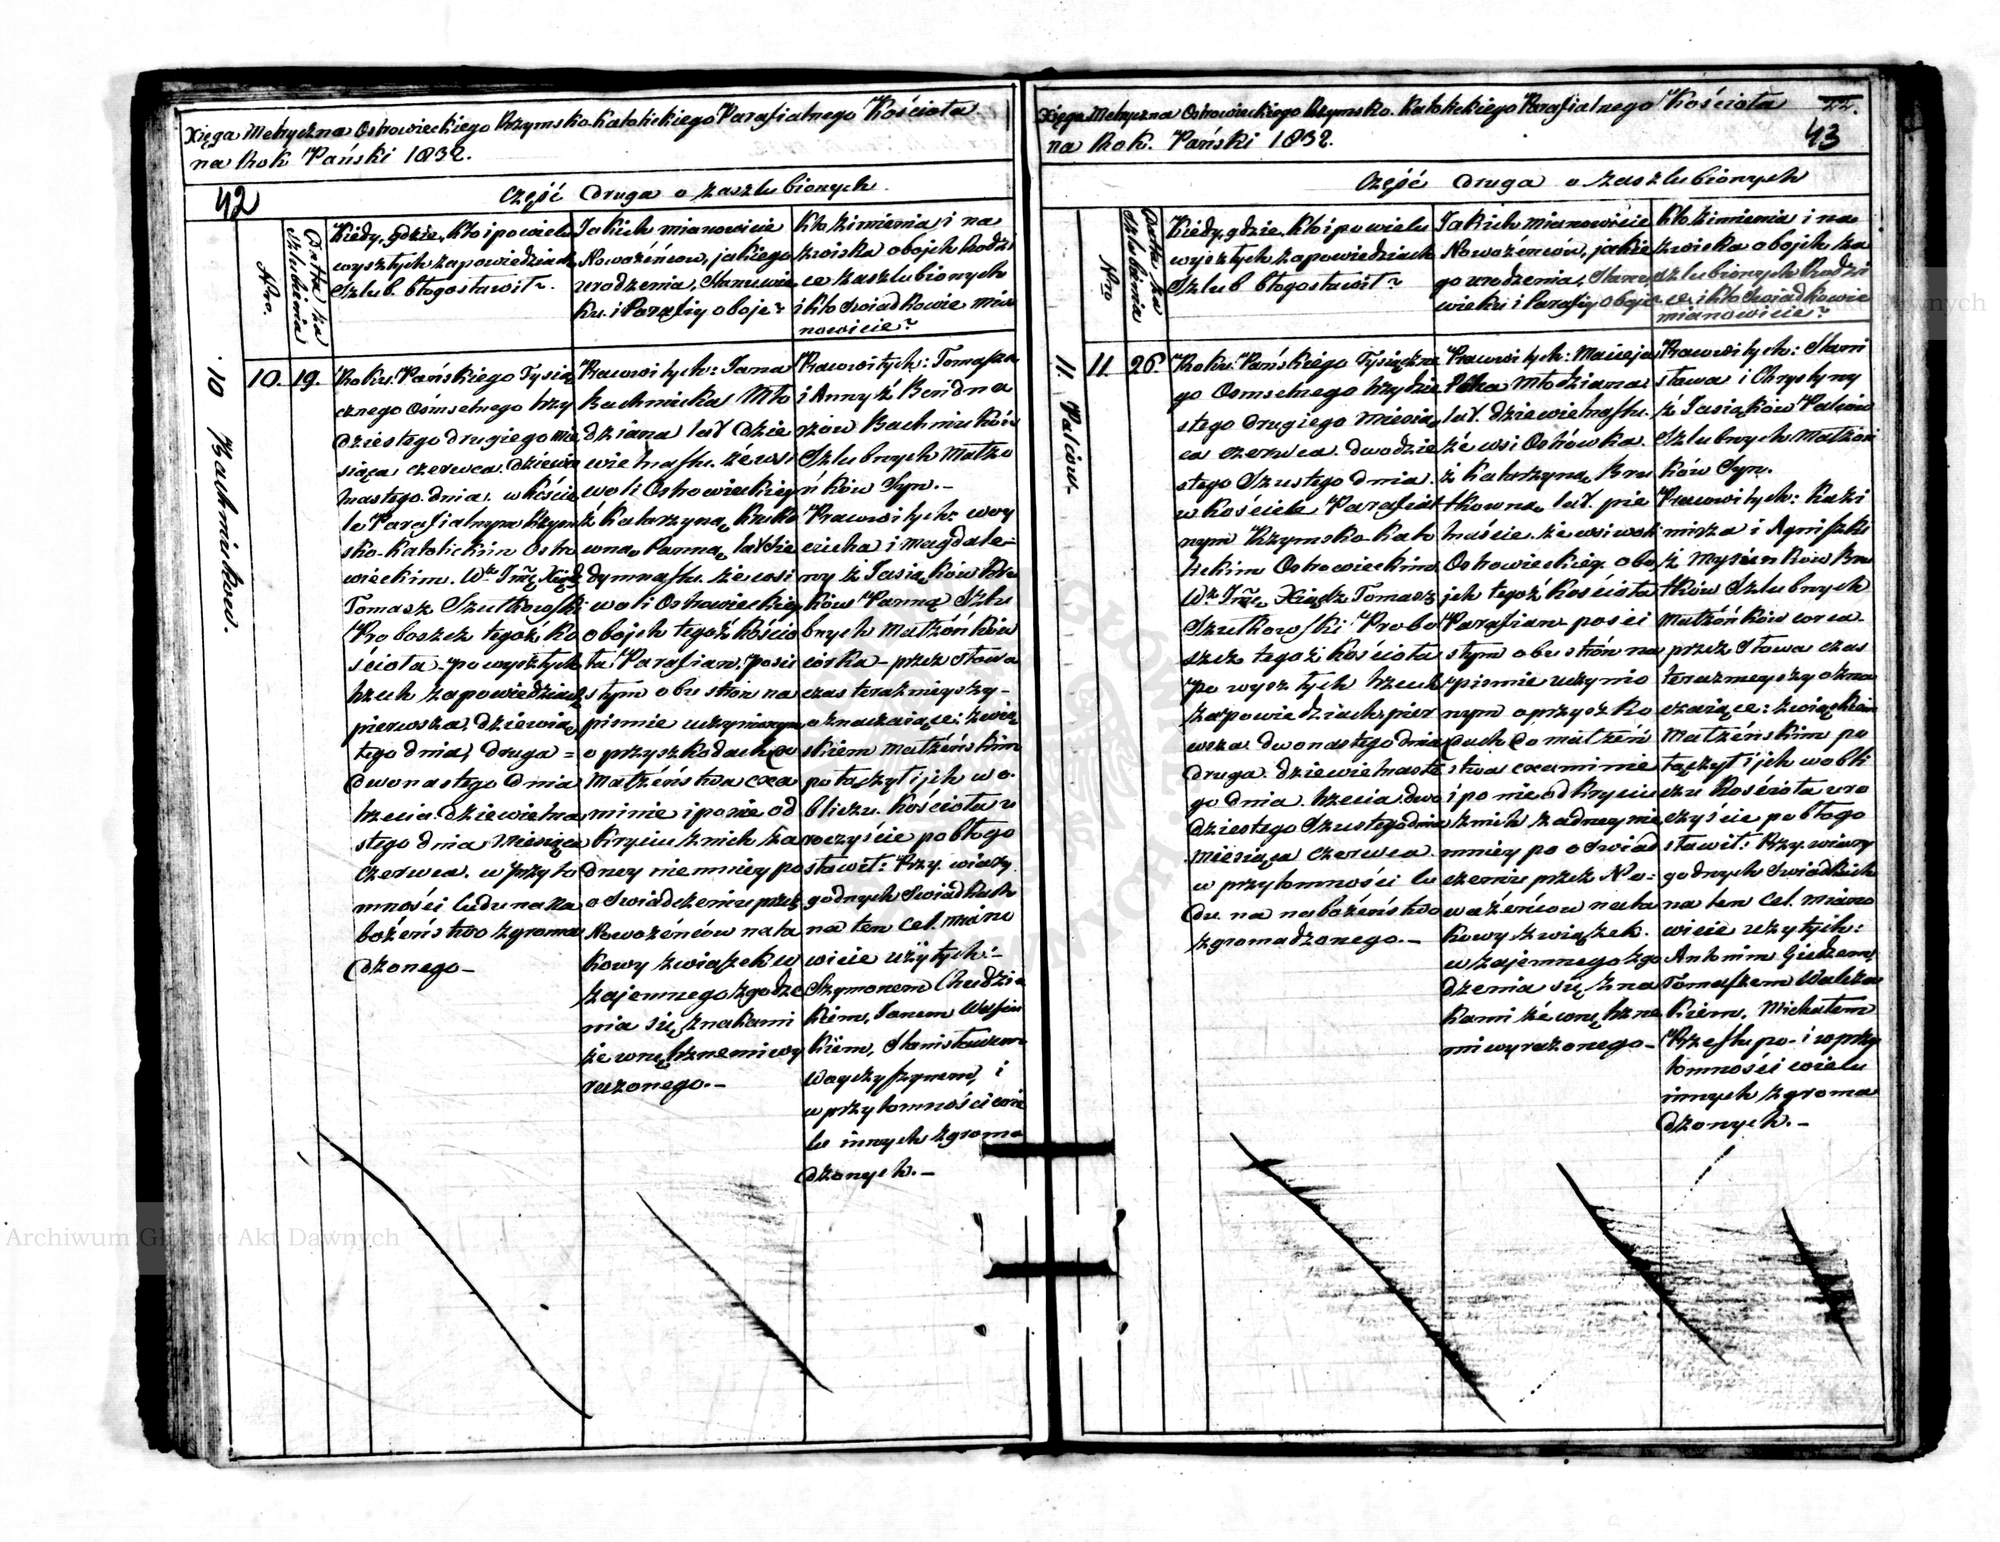 Xięga Metryczna Ostrowieckiego Rzymsko-Katolickiego Parafialnego Kościoła
na Rok Pański 1832.
42
Część druga o zaszlubionych
Nro.
Datta za
szlubienia
Kiedy, gdzie, kto i po wielu
wyszłych zapowiedziach
Szlub błogosławił?
Jakich mianowicie
Nowożeńców, jakiego
urodzenia, Stanu, wie
ku i Parafiy oboje?
Kto z imienia i na
zwiska obojch Rodzi
ce zaszlubionych
i kto Swiadkowie mia
nowicie?
10 Bachniuków.
10.
19.
Roku Pańskiego Tysią
cznego Ośmsetnego trzy
dziestego drugiego mie
siąca czerwca dziewię
tnastego dnia w Koście
le Parafialnym Rzym
sko-Katolickim Ostro
wieckim. Wny Jmć Xiądz
Tomasz Szutkowski
Proboszcz tegoż Ko
ścioła po wyszłych
trzech zapowiedziach
pierwsza, dziewią
tego dnia, druga =
dwonastego dnia
trzecia dziewietna
stego dnia Miesiąca
czerwca w przyto
mności ludu na na
bożeństwo zgroma
dzonego –
Prawowitych: Jana
Bachniuka Mło
dziana lat dzie
wietnastu ze wsi
woli Ostrowieckiey
z Katarzyną Kruko
wną Panną lat sie
dymnastu ze wsi
woli Ostrowieckiey
obojch tegoż kościo
ła Parafian, posie
stym obustron na
pismie uczynionym
o przyszkodach do
Małżeństwa exa
minie i po nie od
kryciu z nich ża
dney niemniey po
oswiadczeniu przez
Nowożeńców na ta
kowy związek w
zajemnego zgodze
nia się znakami
zewnętrznemi wy
rażonego. –
Prawowitych: Tomasza
i Anny z Bendna
rzów Bachniuków
Szlubnych Małżo
nków Syn. –
Prawowitych: woy
ciecha i Magdale=
ny z Jasiaków Kru
ków Panną Szlu
bnych Małżónków
córka – przez słowa
czas teraznieyszy –
oznaczaiące: zwią
zkiem małżeńskim
połaczył i jch w o
bliczu Kościoła u
roczyście pobłogo
sławił: Przy wiary
godnych Swiadkach
na ten cel miano
wicie użytych: –
Szymonem Chudzia
kiem, Janem
kiem, Stanisławem
Wayszyszynem, i
w przytomności wie
lu innych zgroma
dzonych. –
Xięga Metryczna Ostrowieckiego Rzymsko-Katolickiego Parafialnego Kościoła
na Rok Pański 1832.
22.
43
Część druga o zaszlubionych
Nro
Datta za
szlubienia
Kiedy, gdzie, kto i po wielu
wyszłych zapowiedziach
Szlub błogosławił?
Jakich mianowicie
Nowożeńców, jakie
go urodzenia, Stanu,
wieku i Parafiy oboje
Kto z imienia i na
zwiska obojch za
szlubionych Rodzi
ce i kto Swiadkowie
mianowicie?
11. Palców.
11.
26
Roku Pańskiego Tysiączne
go Osmsetnego trzydzie
stego drugiego miesią
ca czerwca dwodzie
stego Szustego dnia
w kościele Parafial
nym Rzymsko-Kato
lickim Ostrowieckim
Wny Jmć Xiądz Tomasz
Szutkowski Probo
szcz tegoż kościoła
po wyszłych trzech
zapowiedziach pier
wsza dwonastego dnia
druga dziewietnaste
go dnia trzecia dwo
dziestego Szustego dnia
miesiąca czerwca
w przytomności lu
du na nabożeństwo
zgromadzonego. –
Prawowitych: Macieja
Palca Młodziana
lat dziewietnastu
ze wsi Ostrówka
z Katarzyną Bru
tkowną lat pie
tnaście ze wsi woli
Ostrowieckiey obo
jch tegoż Kościoła
Parafian posie
stym obustrón na
pismie uczynio
nym o przyszko
dach do małżeń
stwa examinie
i po nie odkryciu
z nich żadney nie
mniey po oswiad
czeniu przez No=
wożeńców na ta
kowy związek
wzajemnego zgo
dzenia się zna
kami zewnętrzne
mi wyrażonego –
Prawowitych: Stani
sława i Chrystyny
z Jasiaków Palców
Szlubnych Małżon
ków Syn.
Prawowitych: Kazi
mirza i Agniszki
z Bru
tków Szlubnych
Małżónków corca
przez słowa czas
teraznieyszy ozna
czaiące: związkiem
Małżeńskim po
łączył i jch w obli
czu Kościoła uro
czyście pobłogo
sławił: Przy wiary
godnych Swiadkach
na ten cel miano
wicie użytych:
Antonim Giedzem,
Tomaszem Walcza
kiem, Michałem
Przestupo i w przy
tomności wielu
innych zgroma
dzonych. –
Archiwum Główne Akt Dawnych